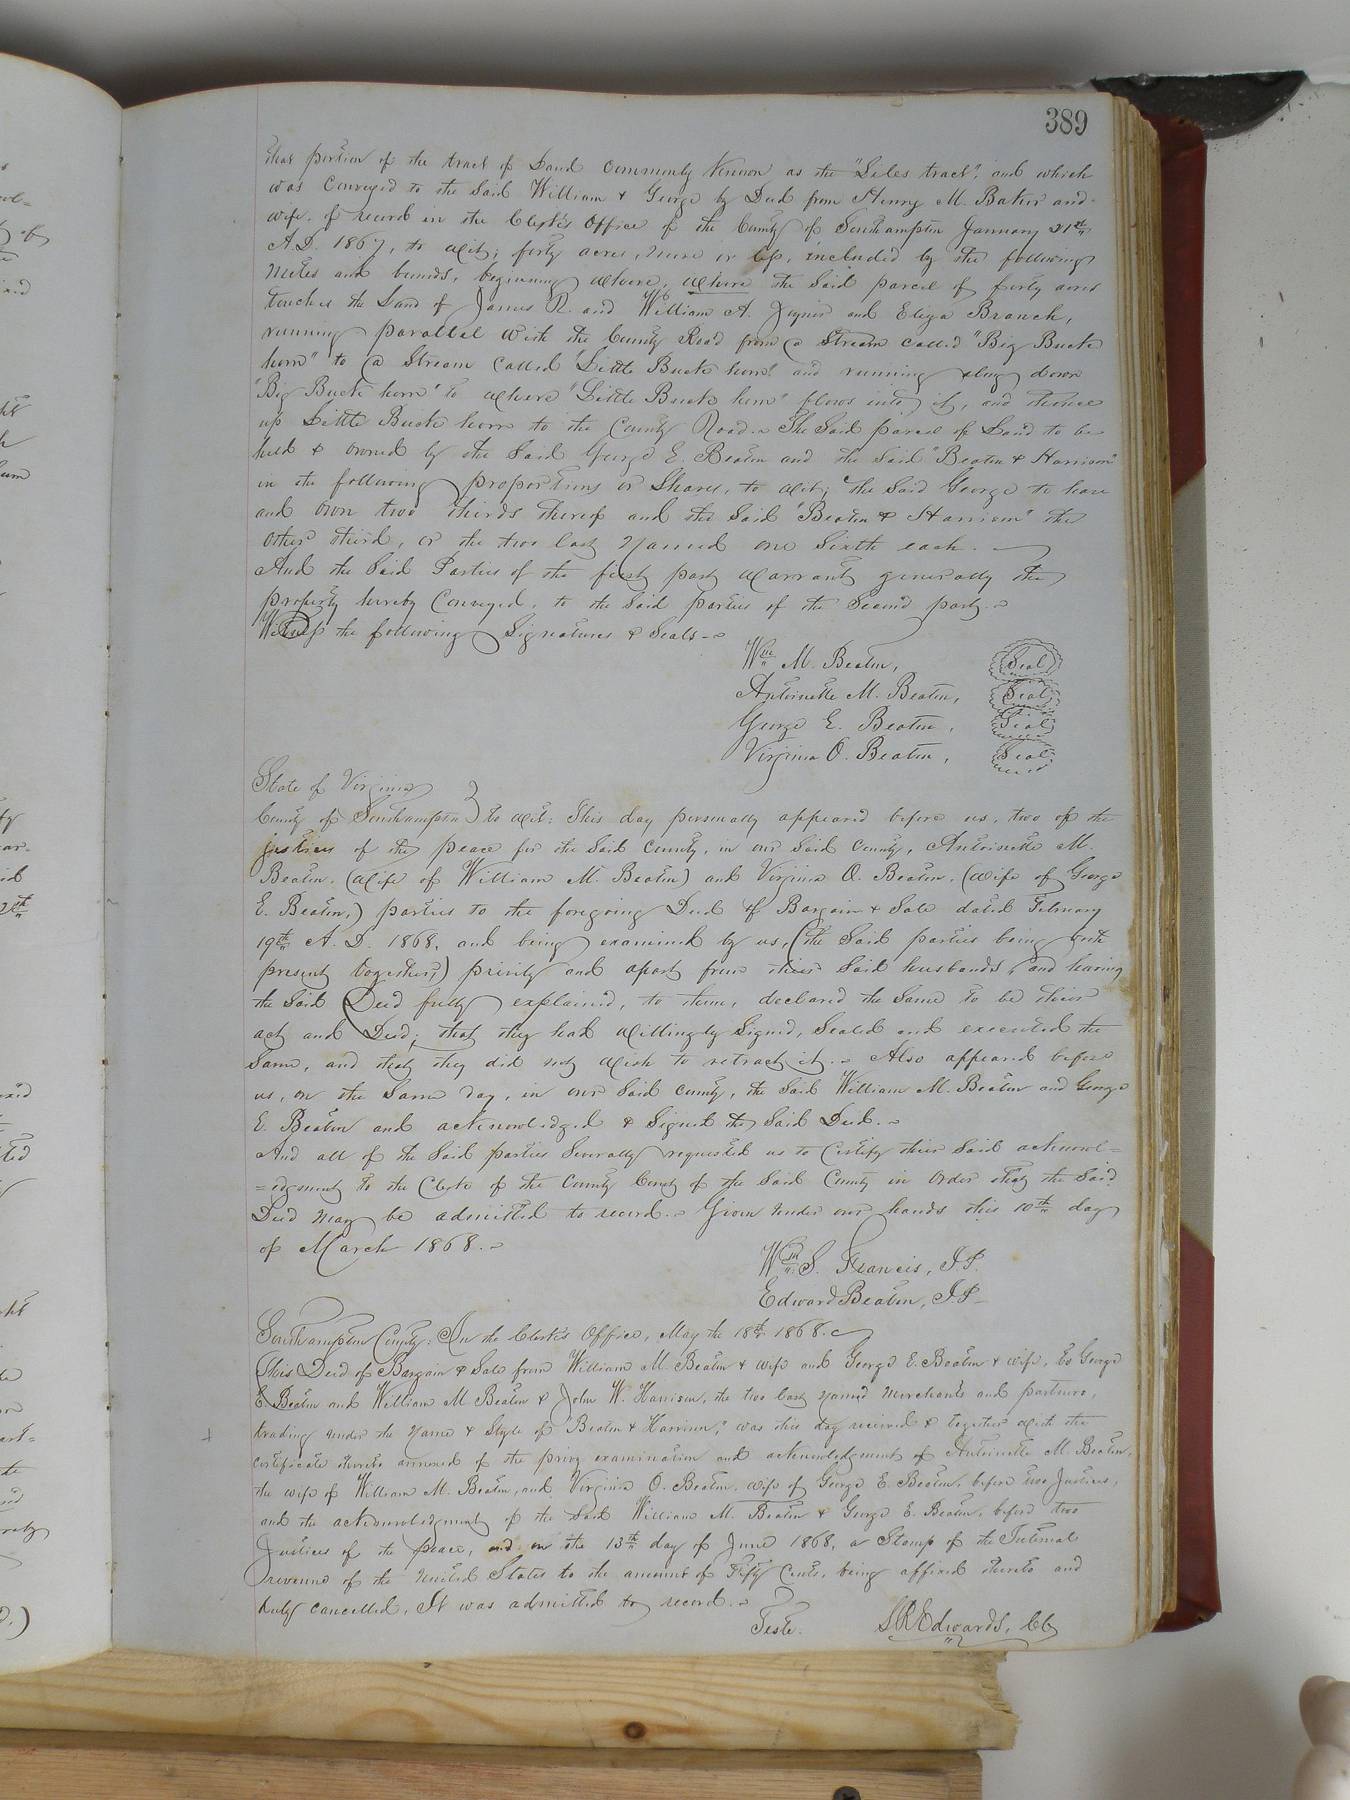 389
that portion of the tract of Land commonly Known as the "Liles tract", and which
was Conveyed to the Said William & George by Deed from Henry M. Baker and
wife, of record in the Clerk's Office of the County of Southampton January 21st
A.D. 1867, to wit; forty acres, more or less, included by the following
metes and bounds, beginning where, where the Said parcel of forty acres
touches the Land of James R. and William A. Joyner and Eliza Branch,
running parallel with the County Road from a Stream called "Big Buck
horn" to a Stream Called "Little Buck horn" and running along down
"Big Buck horn" to where "Little Buck horn" flows into it, and thence
up Little Buck horn to the County Road. The Said parcel of Land to be
held & owned by the Said George E. Beaton and the Said "Beaton & Harrison"
in the following proportions or Shares, to wit; the Said George to have
and own two thirds thereof and the Said "Beaton & Harrison" the
other third, or the two last named one Sixth each.
And the Said Parties of the first part warrant generally the
property hereby Conveyed, to the Said parties of the Second part.
Witness the following Signatures & Seals
Wm M. Beaton, Seal
Antoinette M. Beaton, Seal
George E. Beaton, Seal
Virginia O. Beaton, Seal
State of Virginia
County of Southampton } to wit: This day personally appeared before us, two of the
justices of the peace for the Said County, in our Said County, Antoinette M.
Beaton, (wife of William M. Beaton) and Virginia O. Beaton, (wife of George
E. Beaton,) parties to the foregoing Deed of Bargain & Sale dated February
19th A.D. 1868, and being examined by us, (the Said parties being both
present together,) privily and apart from their Said husbands, and having
the Said Deed fully explained, to them, declared the Same to be their
act and Deed; that they had willingly Signed, Sealed and executed the
Same, and that they did not wish to retract it. Also appeared before
us, on the Same day, in our Said County, the Said William M. Beaton and George
E. Beaton and acknowledged & Signed the Said Deed.
And all of the Said parties Severally requested us to Certify their Said acknowl=
=edgment to the Clerk of the County Court of the Said County in order that the Said
Deed may be admitted to record. Given under our hands this 10th day
of March 1868.
Wm S. Francis, J.P.
Edward Beaton, J.P.
Southampton County: In the Clerk's Office, May the 18th 1868.
This Deed of Bargain & Sale from William M. Beaton & wife and George E. Beaton & wife, to George
E Beaton and William M Beaton & John W. Harrison, the two last named merchants and partners,
trading under the Name & Style of "Beaton & Harrison," was this day received & together with the
certificate thereto annexed of the privy examination and acknowledgment of Antoinette M. Beaton,
the wife of William M. Beaton, and Virginia O. Beaton, wife of George E. Beaton, before two Justices,
and the acknowledgment of the Said William M. Beaton & George E. Beaton, before two
Justices of the peace, and on the 13th day of June 1868, a Stamp of the Internal
revenue of the United States to the amount of Fifty Cents, being affixed thereto and
duly cancelled, It was admitted to record.
Teste. L R Edwards, CC